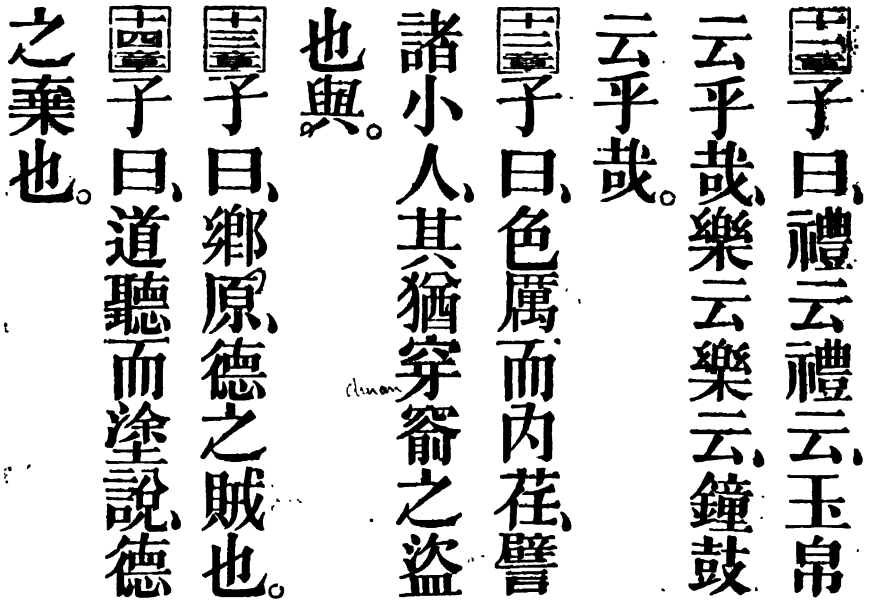 十一章子曰、禮云禮云、玉帛
云乎哉、樂云樂云、鐘鼓
云乎哉。
十二章子曰、色厲而內荏、譬
諸小人、其猶穿窬之盜
也與。
十三章子曰、鄉原、德之賊也。
十四章子曰、道聽而塗說、德
之棄也。
chuan